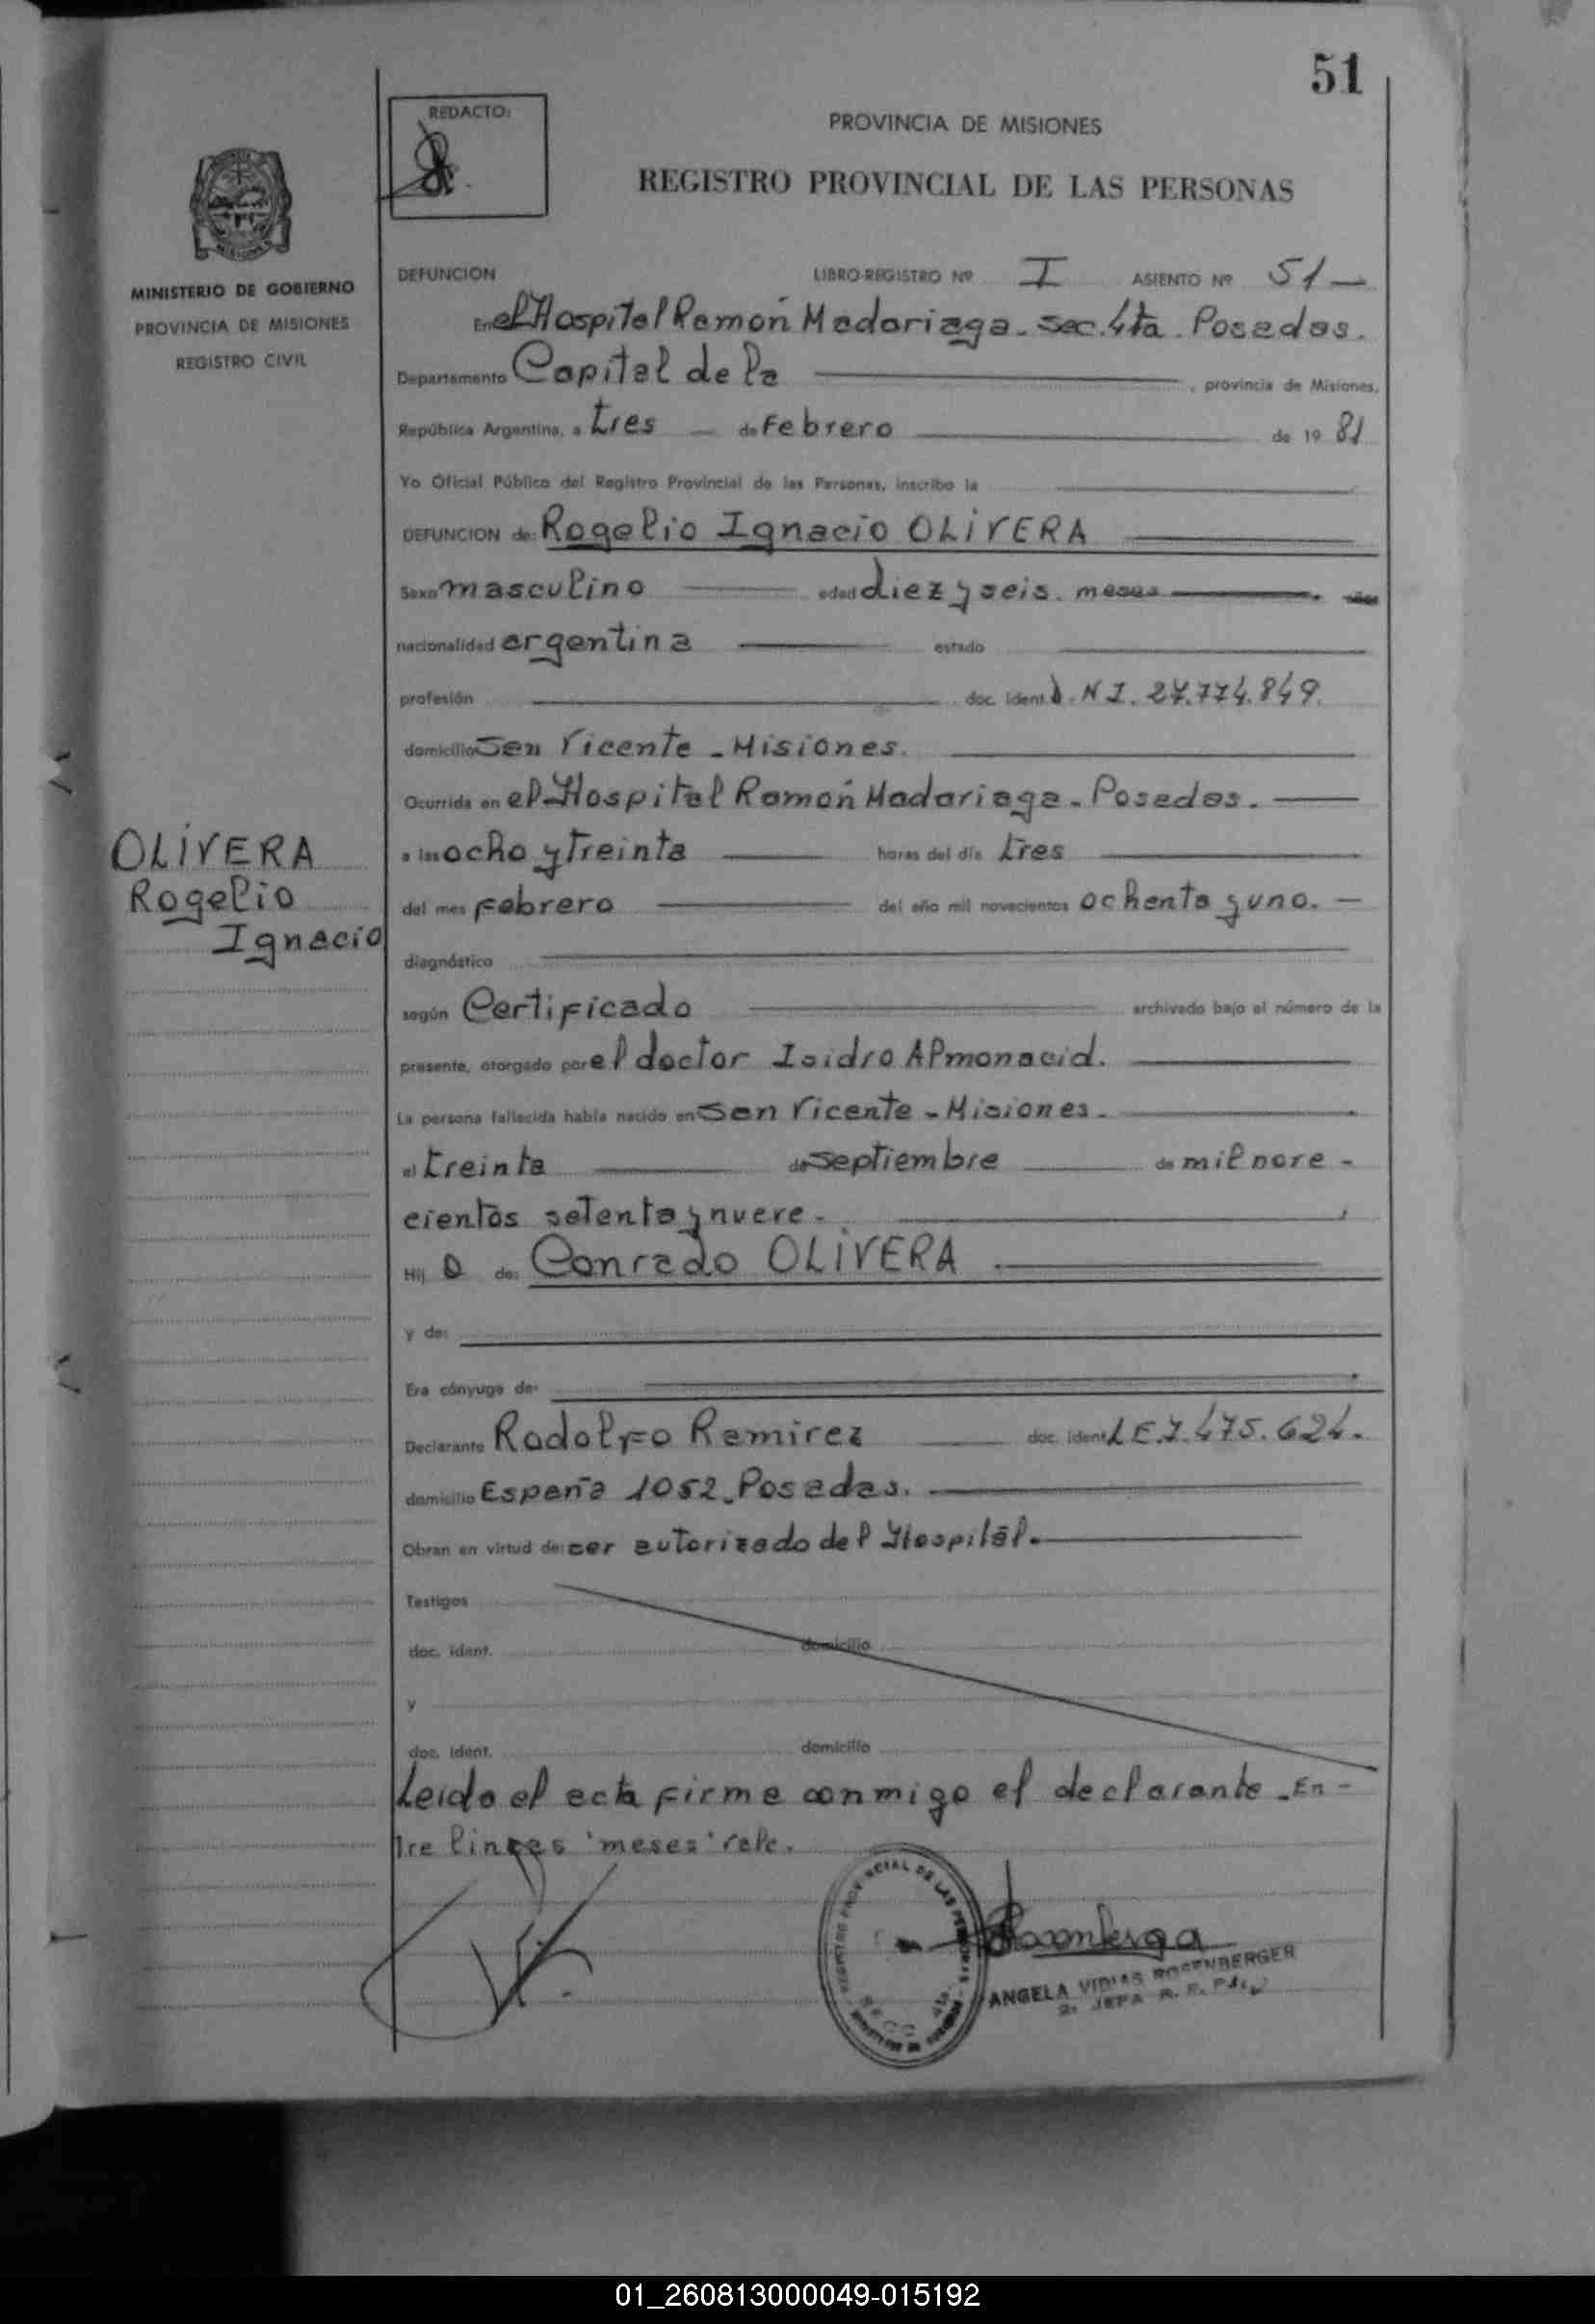 51
REDACTO:
PROVINCIA DE MISIONES
REGISTRO PROVINCIAL DE LAS PERSONAS
MINISTERIO DE GOBIERNO
PROVINCIA DE MISIONES
REGISTRO CIVIL
DEFUNCION LIBRO-REGISTRO Nº I ASIENTO Nº 51-
En el Hospital Ramón Madariaga - sec. 4ta. Posadas.
Departamento Capital de la , provincia de Misiones,
República Argentina, a tres de Febrero de 19 81
Yo Oficial Público del Registro Provincial de las Personas, inscribo la
DEFUNCION de: Rogelio Ignacio OLIVERA
Sexo masculino edad diez y seis. meses años
nacionalidad argentina estado
profesión doc. ident. D.N.I. 27.774.849.
domicilio San Vicente - Misiones.
Ocurrida en el Hospital Ramón Madariaga - Posadas.
a las ocho y treinta horas del día tres
del mes Febrero del año mil novecientos ochenta y uno.
diagnóstico
según Certificado archivado bajo el número de la
presente, otorgado por el doctor Isidro Almonacid.
La persona fallecida había nacido en San Vicente - Misiones.
el treinta de septiembre de mil nove-
cientos setenta y nueve.
Hij o de: Conrado OLIVERA
y de:
Era cónyuge de:
Declarante Rodolfo Ramirez doc. ident. L E.7.475.624.
domicilio España 1052 - Posadas.
Obran en virtud de: ser autorizado del Hospital.
Testigos
doc. ident. domicilio
y
doc. ident. domicilio
Leida el acta firma conmigo el declarante. En-
tre lineas 'meses' vale.
OLIVERA
Rogelio
Ignacio
ANGELA ROSENBERGER
01_260813000049-015192